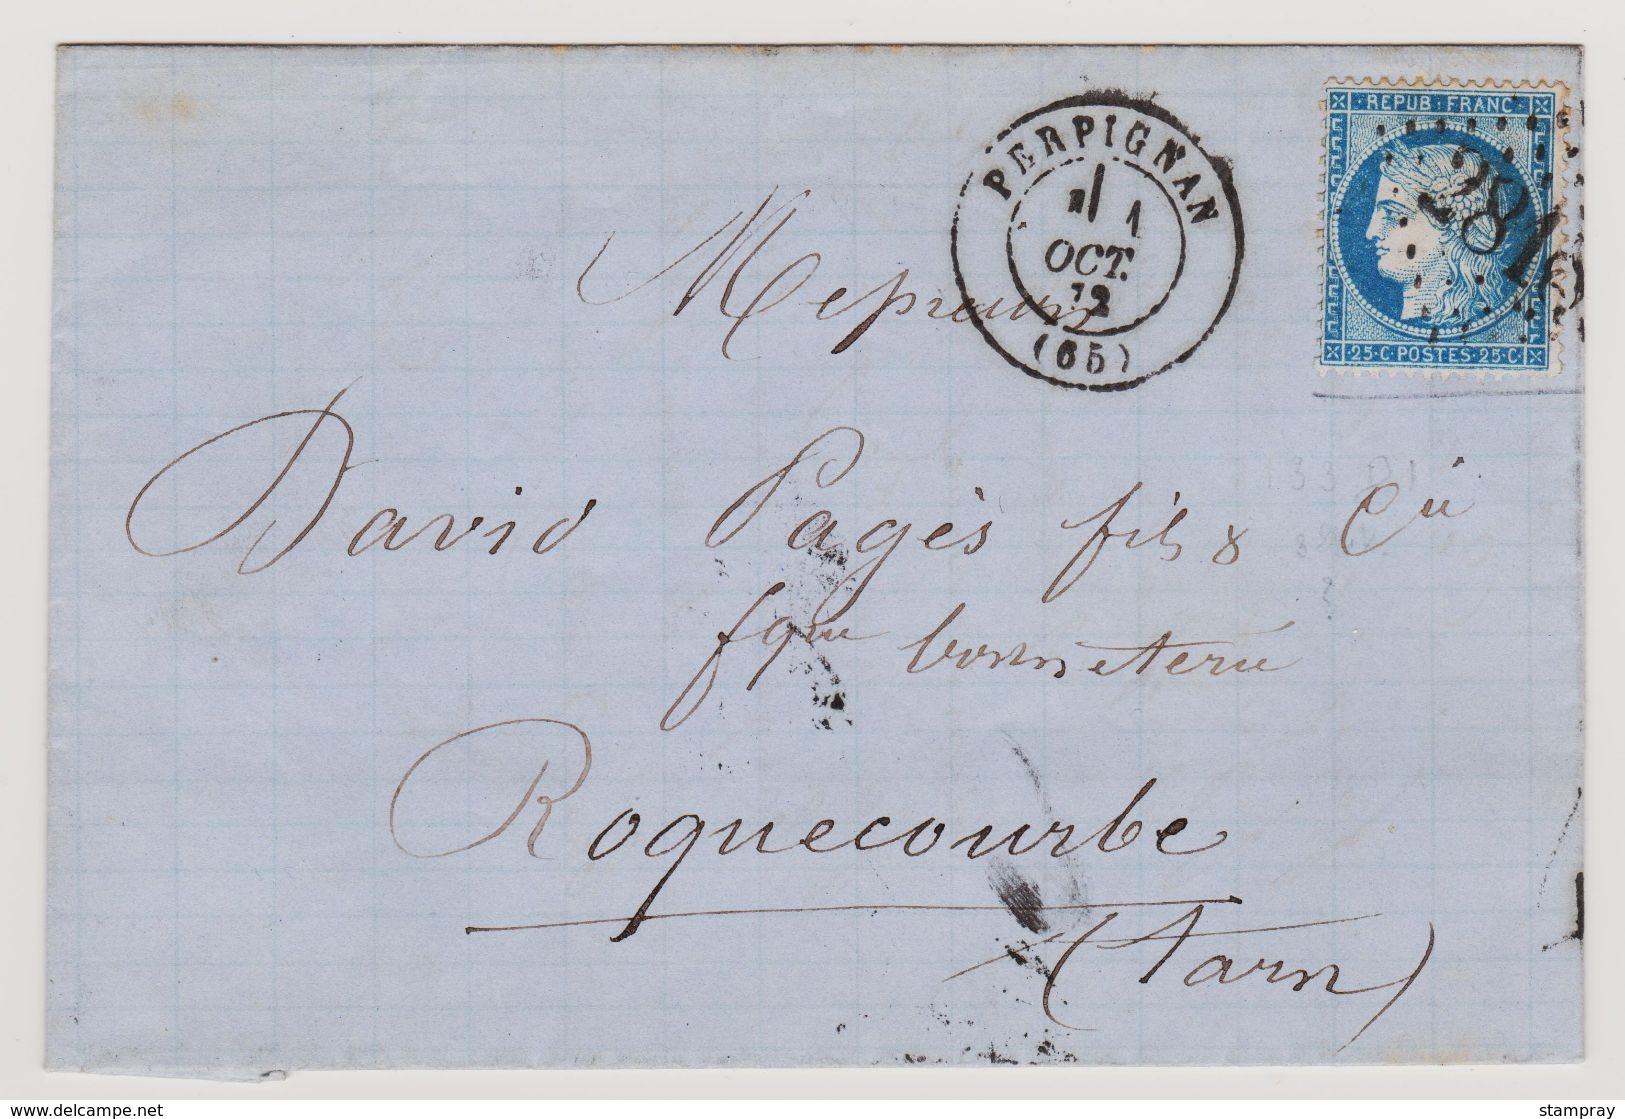 REPUB·FRANC
2816
25·C·POSTES·25·C
PERPIGNAN
1
OCT.
72
(65)
David Pagès fils &
bonneterie
Roquecourbe
(Tarn)
stampray
www.delcampe.net